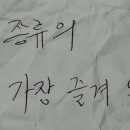 종류의
가장 즐겨